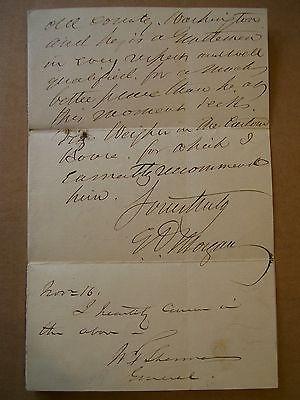 old County, Washington
and he is a Gentleman
in every respect and well
qualified for a much
better place than he at
this moment seeks.
viz. Weigher in the Custom
House. for which I
earnestly recommend
him.
Yours truly
E D Morgan
Nov 16.
I heartily concur in
the above —
W T Sherman
General